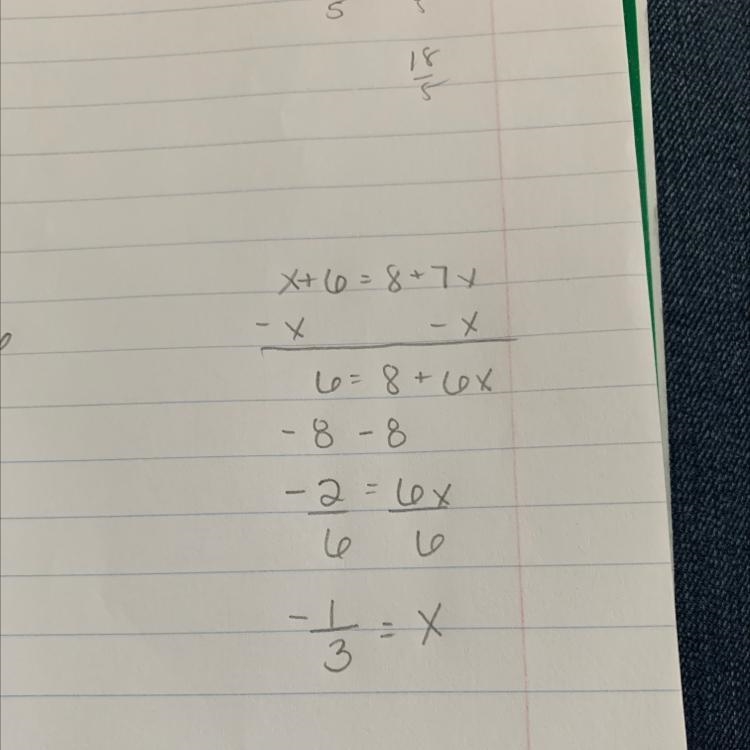 5 5
18
5
x+6=8+7x
-x -x
6=8+6x
-8 -8
-2=6x
6 6
-1=x
3